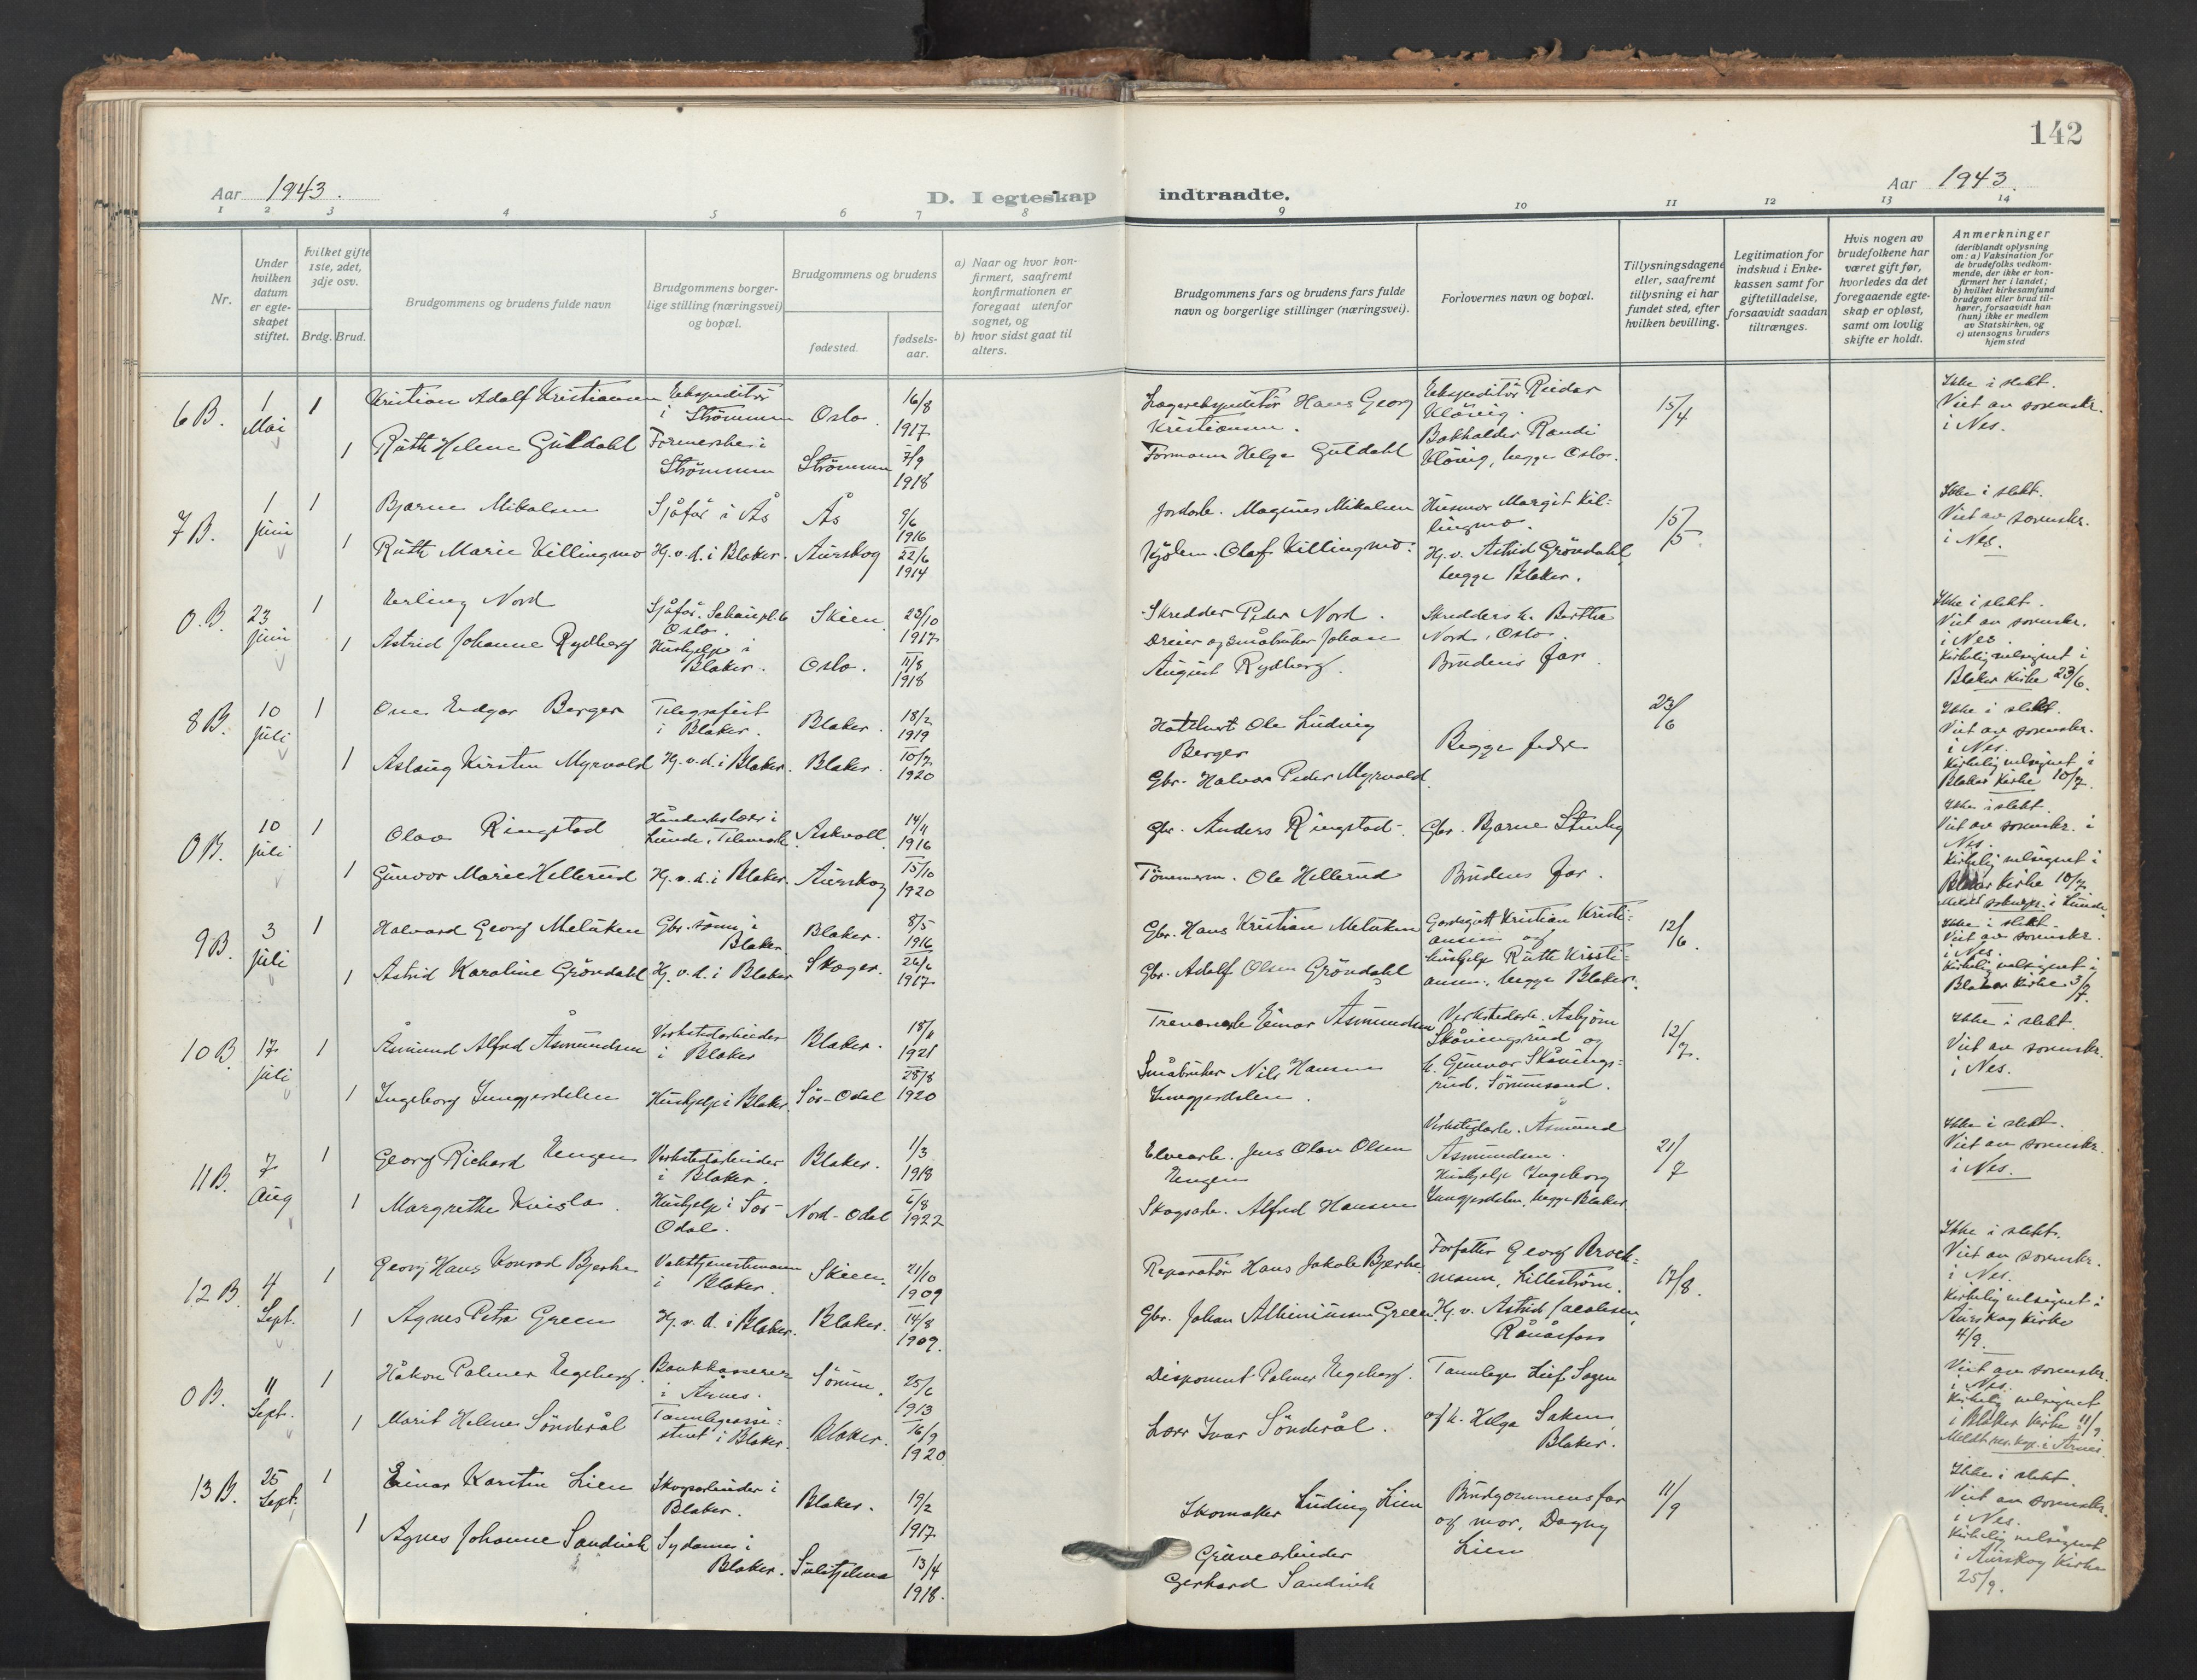 142
Aar 1943.
D. I egteskap indtraadte.
Aar 1943.
1 2 3 4 5 6 7 8 9 10 11 12 13 14
Nr.
Under hvilken datum er egteskapet stiftet.
hvilket gifte 1ste, 2det, 3dje osv.
Brdg. Brud.
Brudgommens og brudens fulde navn
Brudgommens borgerlige stilling (næringsvei) og bopæl.
Brudgommens og brudens
fødested.
fødselsaar.
a) Naar og hvor konfirmert, saafremt konfirmationen er foregaat utenfor sognet, og
b) hvor sidst gaat til alters.
Brudgommens fars og brudens fars fulde navn og borgerlige stillinger (næringsvei).
Forlovernes navn og bopæl.
Tillysningsdagene eller, saafremt tillysning ei har fundet sted, efter hvilken bevilling.
Legitimation for indskud i Enkekassen samt for giftetilladelse, forsaavidt saadan tiltrænges.
Hvis nogen av brudefolkene har været gift før, hvorledes da det foregaaende egteskap er opløst, samt om lovlig skifte er holdt.
Anmerkninger
(deriblandt oplysning om: a) Vaksination for de brudefolks vedkommende, der ikke er konfirmert her i landet; b) hvilket kirkesamfund brudgom eller brud tilhører, forsaavidt han (hun) ikke er medlem av Statskirken, og c) utensogns bruders hjemsted
6 B. 1 Mai 1 Kristian Adolf Kristiansen Ekspeditør i Strømmen Oslo. 16/8 1917
Lagerekspeditør Hans Georg Kristiansen. Ekspeditør Reidar Kløvig. 15/4 Ikke i slekt. Viet av sorenskr. i Nes.
1 Ruth Helene Guldahl Strømmen Strømmen 7/9 1918
Formann Helge Guldahl Bokholder Randi Kløvig, begge Oslo.
7 B. 1 juni 1 Bjarne Mikalsen Sjåfør i Ås Ås 9/6 1916
Jordarb. Magnus Mikalsen Husmor Margit Killingmo. 15/5 Ikke i slekt. Viet av sorenskr. i Nes.
1 Ruth Marie Killingmo Hj. v. d. i Blaker. Aurskog 22/6 1914
Olaf Killingmo. Hj. v. Astrid Grøndahl, begge Blaker.
0. B. 23 juni 1 Erling Nord Sjåfør. Oslo. Skien 23/10 1917
Skredder Peder Nord. Skredders h. Bertha Nord, Oslo. Ikke i slekt. Viet av sorenskr. i Nes. Kirkelig velsignet i Blaker Kirke 23/6.
1 Astrid Johanne Rydberg Hushjelp i Blaker. Oslo. 11/8 1918
Dreier og småbruker Johan August Rydberg. Brudens far.
8 B. 10 juli 1 One Endgar Berger Telegrafist i Blaker. Blaker. 18/2 1919
Ole Ludvig Berger Begge fedre 23/6 Ikke i slekt. Viet av sorenskr. i Nes. Kirkelig velsignet i Blaker Kirke 10/7.
1 Aslaug Kirsten Myrvold Hj. v. d. i Blaker. Blaker. 10/7 1920
Gbr. Halvor Peder Myrvold.
0 B. 10 juli 1 Olav Ringstad Håndverkslærer i Lunde, Telemark. Askvoll. 14/11 1916
Gbr. Anders Ringstad. Gbr. Bjarne Stenby Ikke i slekt. Viet av sorenskr. i Nes. Kirkelig velsignet i Blaker Kirke 10/7. Meldt soknepr. i Lunde.
1 Gunvor Marie Hellerud Hj. v. d. i Blaker. Aurskog 15/10 1920
Tømmerm. Ole Hellerud Brudens far.
9 B. 3 juli 1 Halvard Georg Melåken Gbr. sønn i Blaker Blaker. 8/5 1916
Gbr. Hans Kristian Melåken Gardsgutt Kristian Kristiansen og 12/6. Ikke i slekt. Viet av sorenskr. i Nes. Kirkelig velsignet i Blaker Kirke 3/7.
1 Astrid Karoline Grøndahl Hj. v. d. i Blaker Skoger. 26/6 1917
Gbr. Adolf Olsen Grøndahl hushjelp Ruth Kristiansen, begge Blaker.
10 B. 17 juli 1 Åsmund Alfred Åsmundsen Verkstedarbeider i Blaker Blaker. 18/11 1921
Einar Åsmundsen Verkstedarb. Asbjørn Skåningsrud og 12/7. Ikke i slekt. Viet av sorenskr. i Nes.
1 Ingeborg Jungjerdalen Hushjelp i Blaker. Sør-Odal 28/8 1920
Småbruker Nils Hansen Jungjerdalen. h. Gunvor Skåningsrud. Sørumsand.
11 B. 7 Aug 1 Georg Richard Engen Verkstedarbeider i Blaker. Blaker. 1/3 1918
Elvearb. Jens Olav Olsen Engen Verkstedarb. Åsmund Asmundsen. 21/7 Ikke i slekt. Viet av sorenskr. i Nes.
1 Margrethe Kvisla. Hushjelp i Sør-Odal. Nord-Odal 6/8 1922
Skogsarb. Alfred Hansen Hushjelp Ingeborg Jungjerdalen, begge Blaker.
12 B. 4 Sept. 1 Georg Hans Konrad Bjerke Vakttjenestemann i Blaker. Skien. 21/10 1909
Reparatør Hans Jakob Bjerke. Forfatter Georg Brockmann, Lillestrøm. 17/8. Ikke i slekt. Viet av sorenskr. i Nes. Kirkelig velsignet i Aurskog Kirke 4/9.
1 Agnes Petra Green Hj. v. d. i Blaker. Blaker. 14/8 1909.
Gbr. Johan Albinussen Green. Hj. v. Astrid Jacobsen, Rånåsfoss
0 B. 11 Sept. 1 Håkon Palmer Engeberg. Bankkasserer i Årnes. Sørum. 25/6 1913
Disponent Palmer Engeberg. Tannlege Leif Sagen Viet av sorenskr. i Nes. Kirkelig velsignet i Blaker Kirke 11/9. Meldt i Årnes.
1 Marit Helene Sønderål Tannlegeassistent i Blaker. Blaker. 16/9 1920
Ivar Sønderål. og h. Helga Blaker.
13 B. 25 Sept. 1 Einar Karsten Lien Skogsarbeider i Blaker. Blaker. 19/2 1917
Skomaker Ludvig Lien Brudgommens far og mor, Dagny Lien 11/9 Ikke i slekt. Viet av sorenskr. i Nes. Kirkelig velsignet i Aurskog Kirke 25/9.
1 Agnes Johanne Sandvik Sydame i Blaker. Sulitjelma 13/4 1918.
Gruvearbeider Gerhard Sandvik